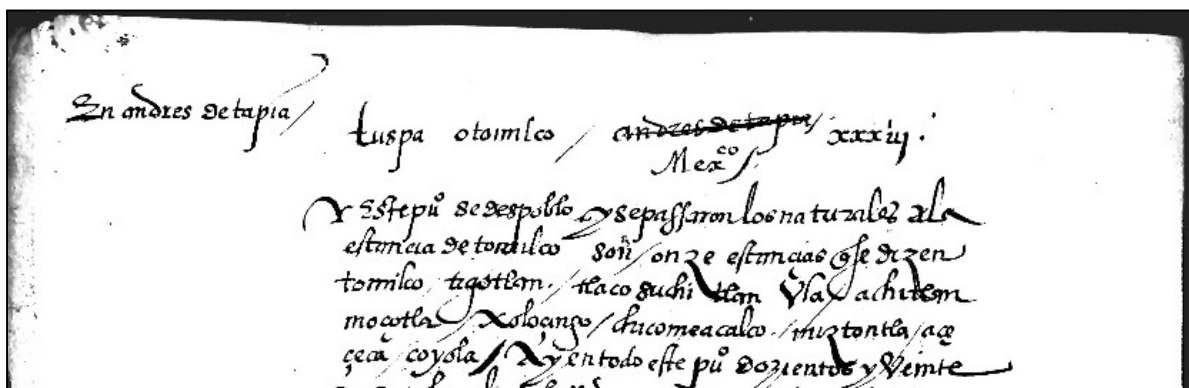 En andres de tapia /
tuspa otomilco / andres de tapia / xxxiij .
Mexco /.
Este puo se despoblo y se passaron los naturales a la
estancia de tomilco son / onze estancias q se dizen
tomilco tigotlan . tlaco suchitlan achitlan
mocotla / xolocingo / chicomeacalco . miztontla / açe
çeca coyola / Ay en todo este puo dozientos y Veinte